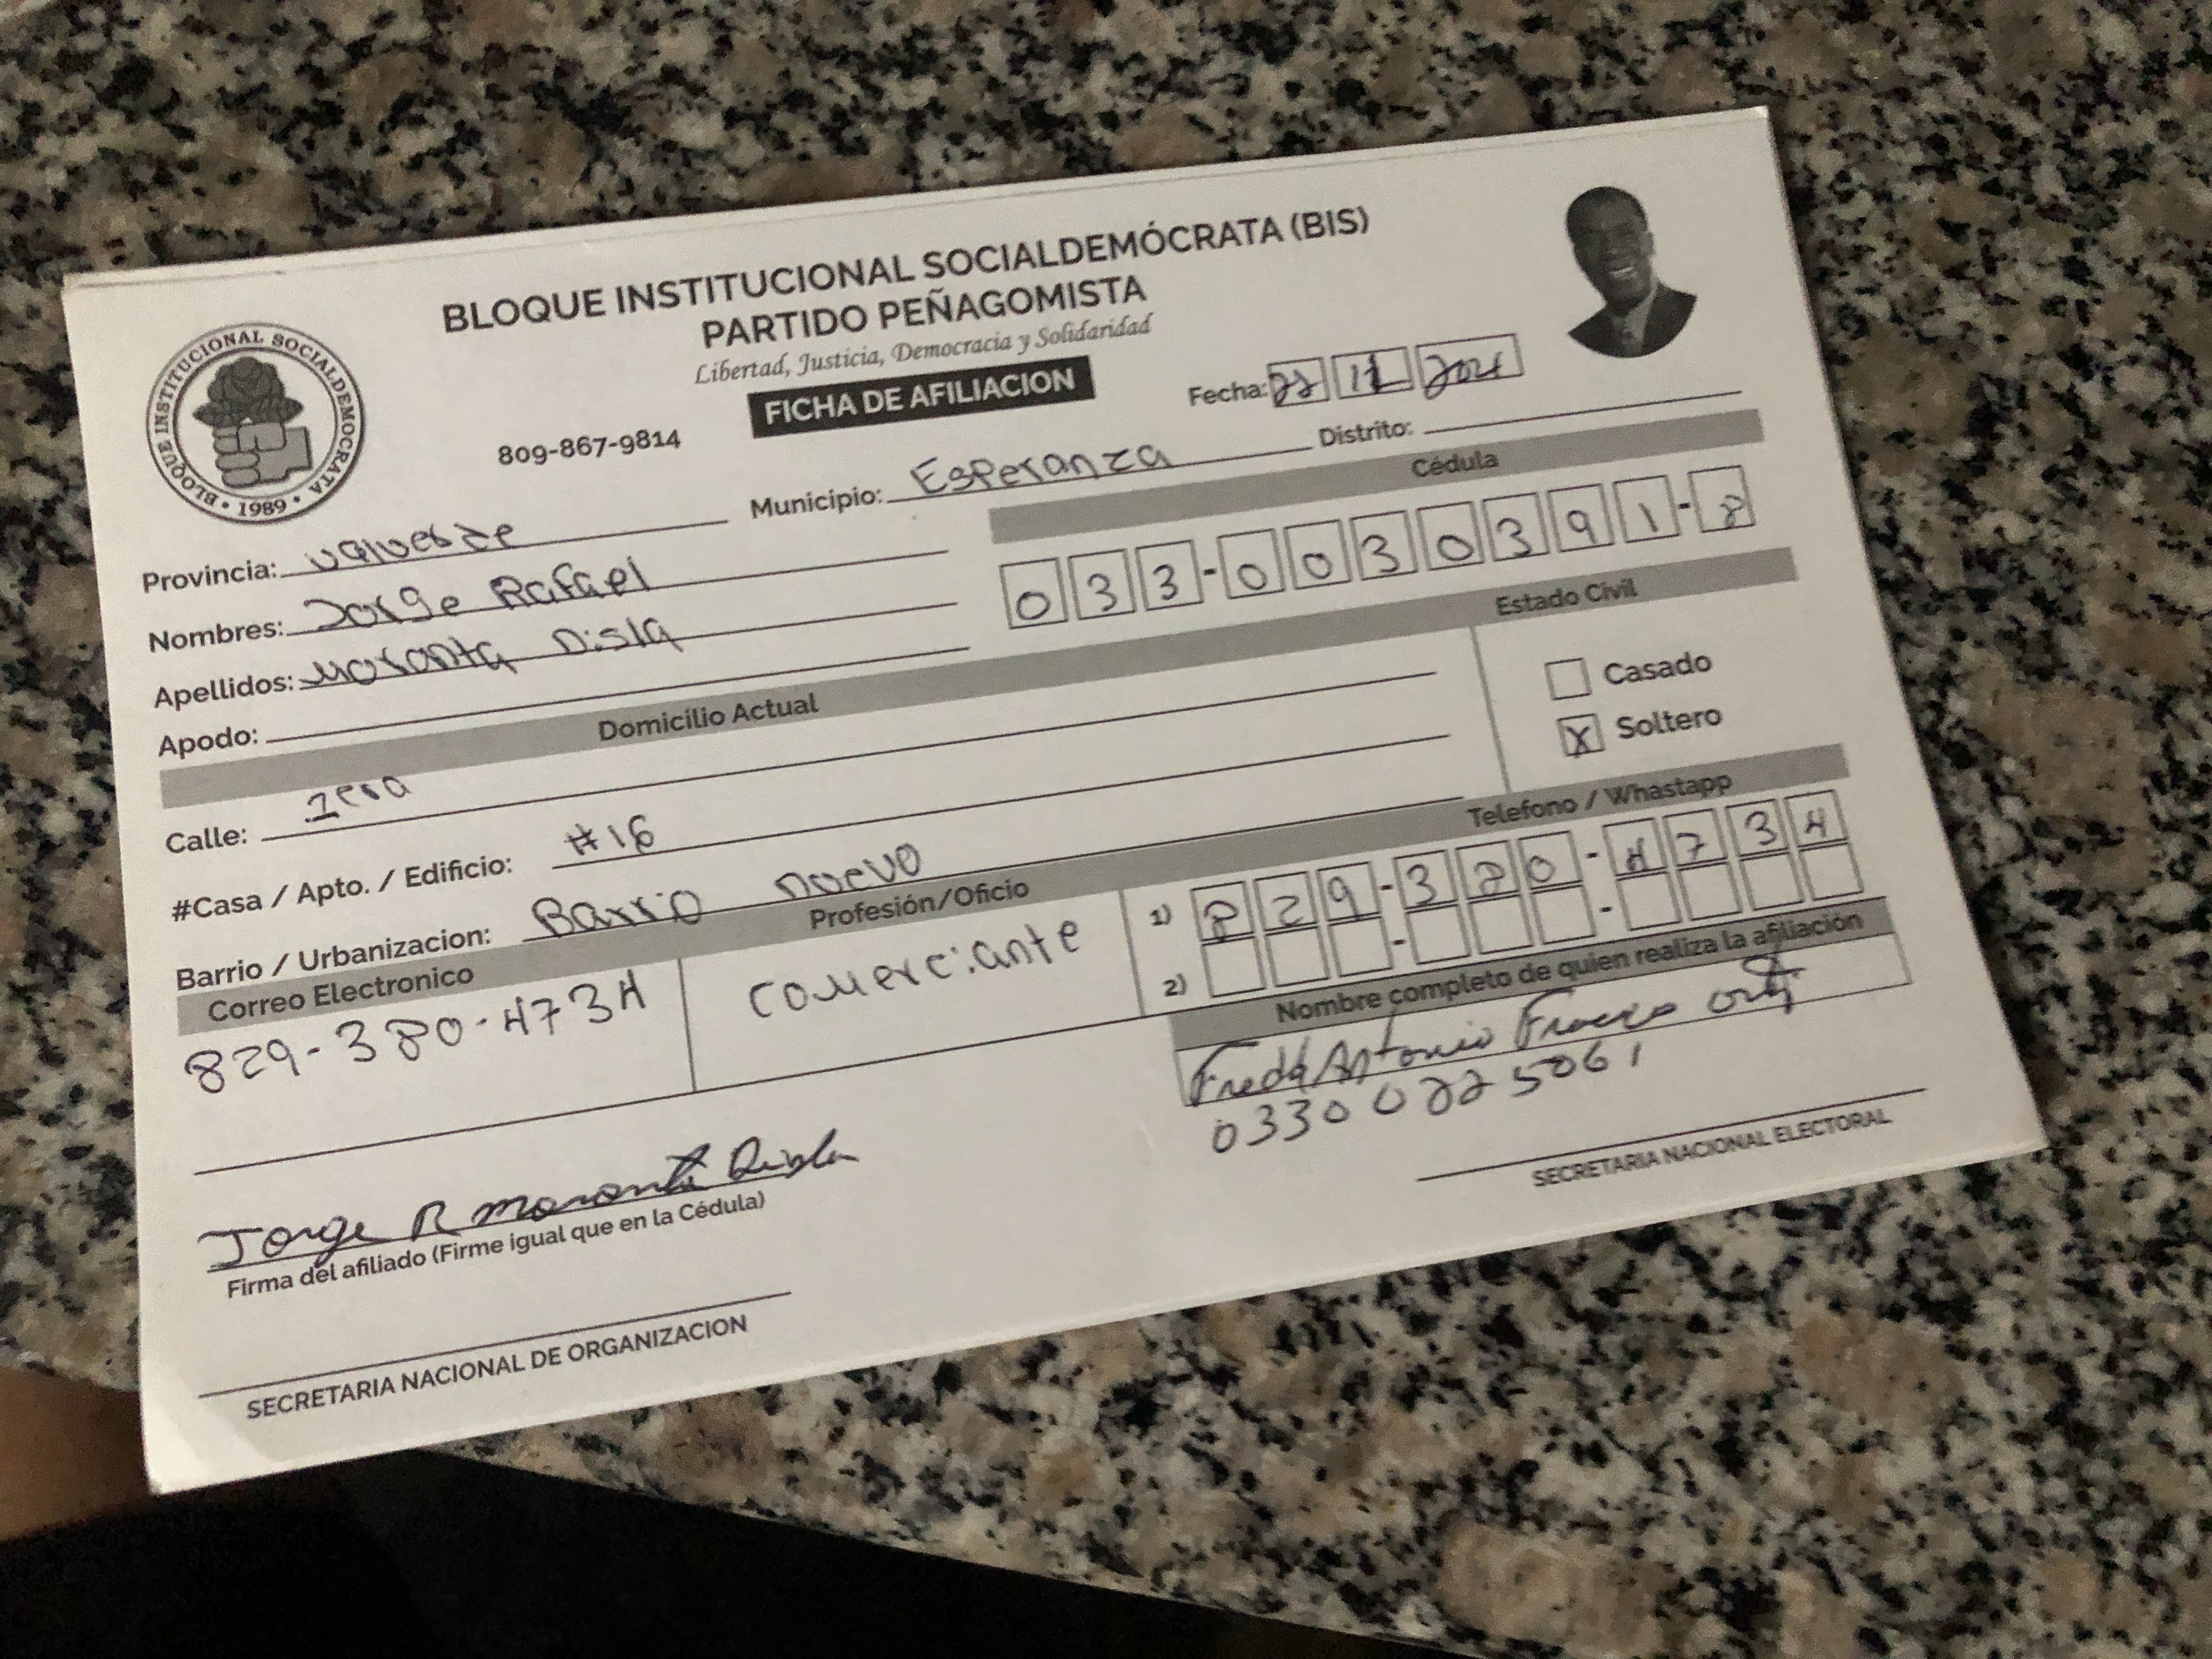 BLOQUE INSTITUCIONAL SOCIALDEMÓCRATA (BIS)
PARTIDO PEÑAGOMISTA
Libertad, Justicia, Democracia y Solidaridad
BLOQUE INSTITUCIONAL SOCIALDEMOCRATA • 1989 •
809-867-9814
FICHA DE AFILIACION
Fecha: 22 11 2021
Provincia: valverde
Municipio: Esperanza
Distrito:
Nombres: Jorge Rafael
Apellidos: Moronta Disla
Apodo:
Cédula
033-0030391-8
Domicilio Actual
Estado Civil
Calle: 1era
#Casa / Apto. / Edificio: #16
Barrio / Urbanizacion: Barrio nuevo
Casado
X Soltero
Correo Electronico
829-380-4734
Profesión/Oficio
comerciante
Telefono / Whastapp
1) 829-380-4734
2) - -
Nombre completo de quien realiza la afiliación
Antonio
03300225061
Jorge R Moronta Disla
Firma del afiliado (Firme igual que en la Cédula)
SECRETARIA NACIONAL ELECTORAL
SECRETARIA NACIONAL DE ORGANIZACION